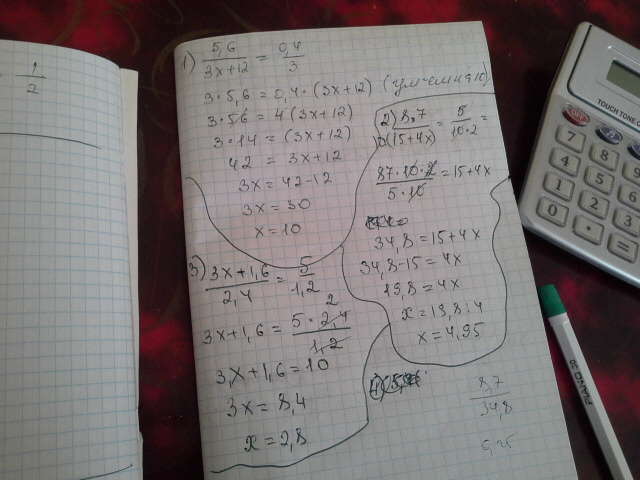 1
2
1) 5,6 / 3x+12 = 0,4 / 3
3·5,6 = 0,4·(3x+12) (умн-ем на 10)
3·56 = 4(3x+12)
3·14 = (3x+12)
42 = 3x+12
3x = 42-12
3x = 30
x = 10
2) 8,7 / (15+4x) = 5 / 10·2 =
87·10·2 / 5·10 = 15+4x
34,8 = 15+4x
34,8-15 = 4x
19,8 = 4x
x = 19,8:4
x = 4,95
3) 3x+1,6 / 2,4 = 5 / 1,2
3x+1,6 = 5·2,4 / 1,2
2
3x+1,6 = 10
3x = 8,4
x = 2,8
8,7
34,8
TOUCH TONE
7
8
4
5
1
2
3
0
·
=